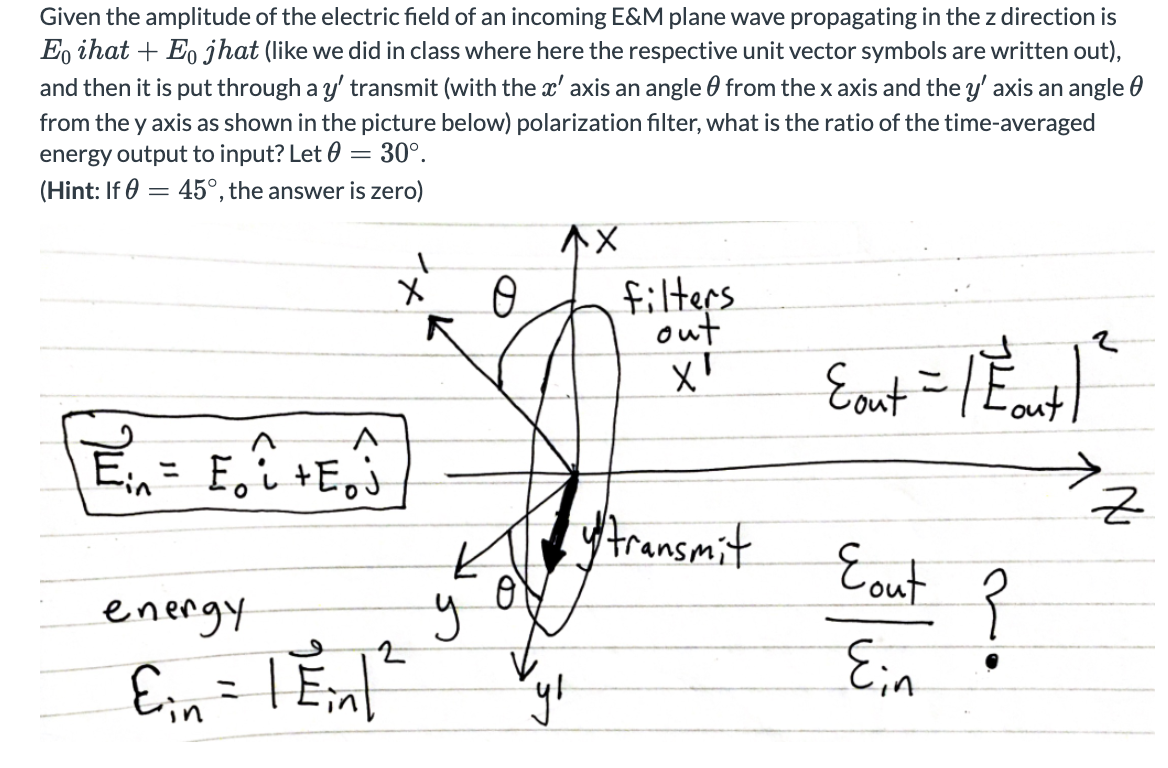 Given the amplitude of the electric field of an incoming E&M plane wave propagating in the z direction is
E₀ ihat + E₀ jhat (like we did in class where here the respective unit vector symbols are written out),
and then it is put through a y′ transmit (with the x′ axis an angle θ from the x axis and the y′ axis an angle θ
from the y axis as shown in the picture below) polarization filter, what is the ratio of the time-averaged
energy output to input? Let θ = 30°.
(Hint: If θ = 45°, the answer is zero)
x
x'
θ
filters
out
x'
Ɛout = |E⃗out|²
E⃗in = E₀ î + E₀ ĵ
z
y' transmit
y
θ
y'
energy
Ɛin = |E⃗in|²
Ɛout
Ɛin
?